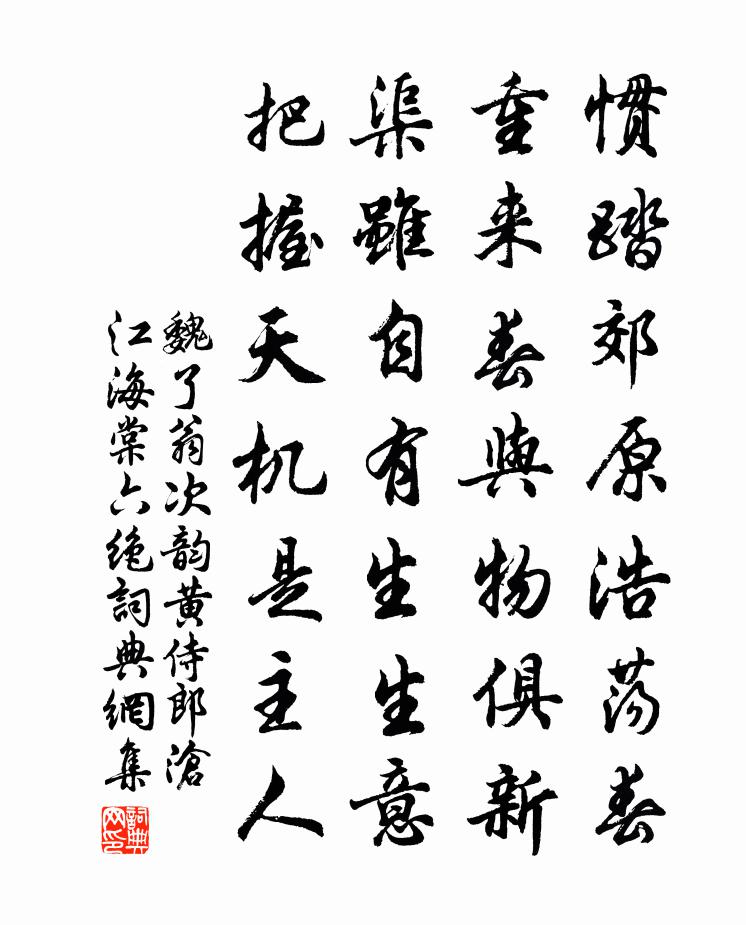 慣踏郊原浩荡春
重来春與物俱新
渠雖自有生生意
把握天机是主人
魏了翁次韵黄侍郎滄
江海棠六绝詞典網集
詞典网印